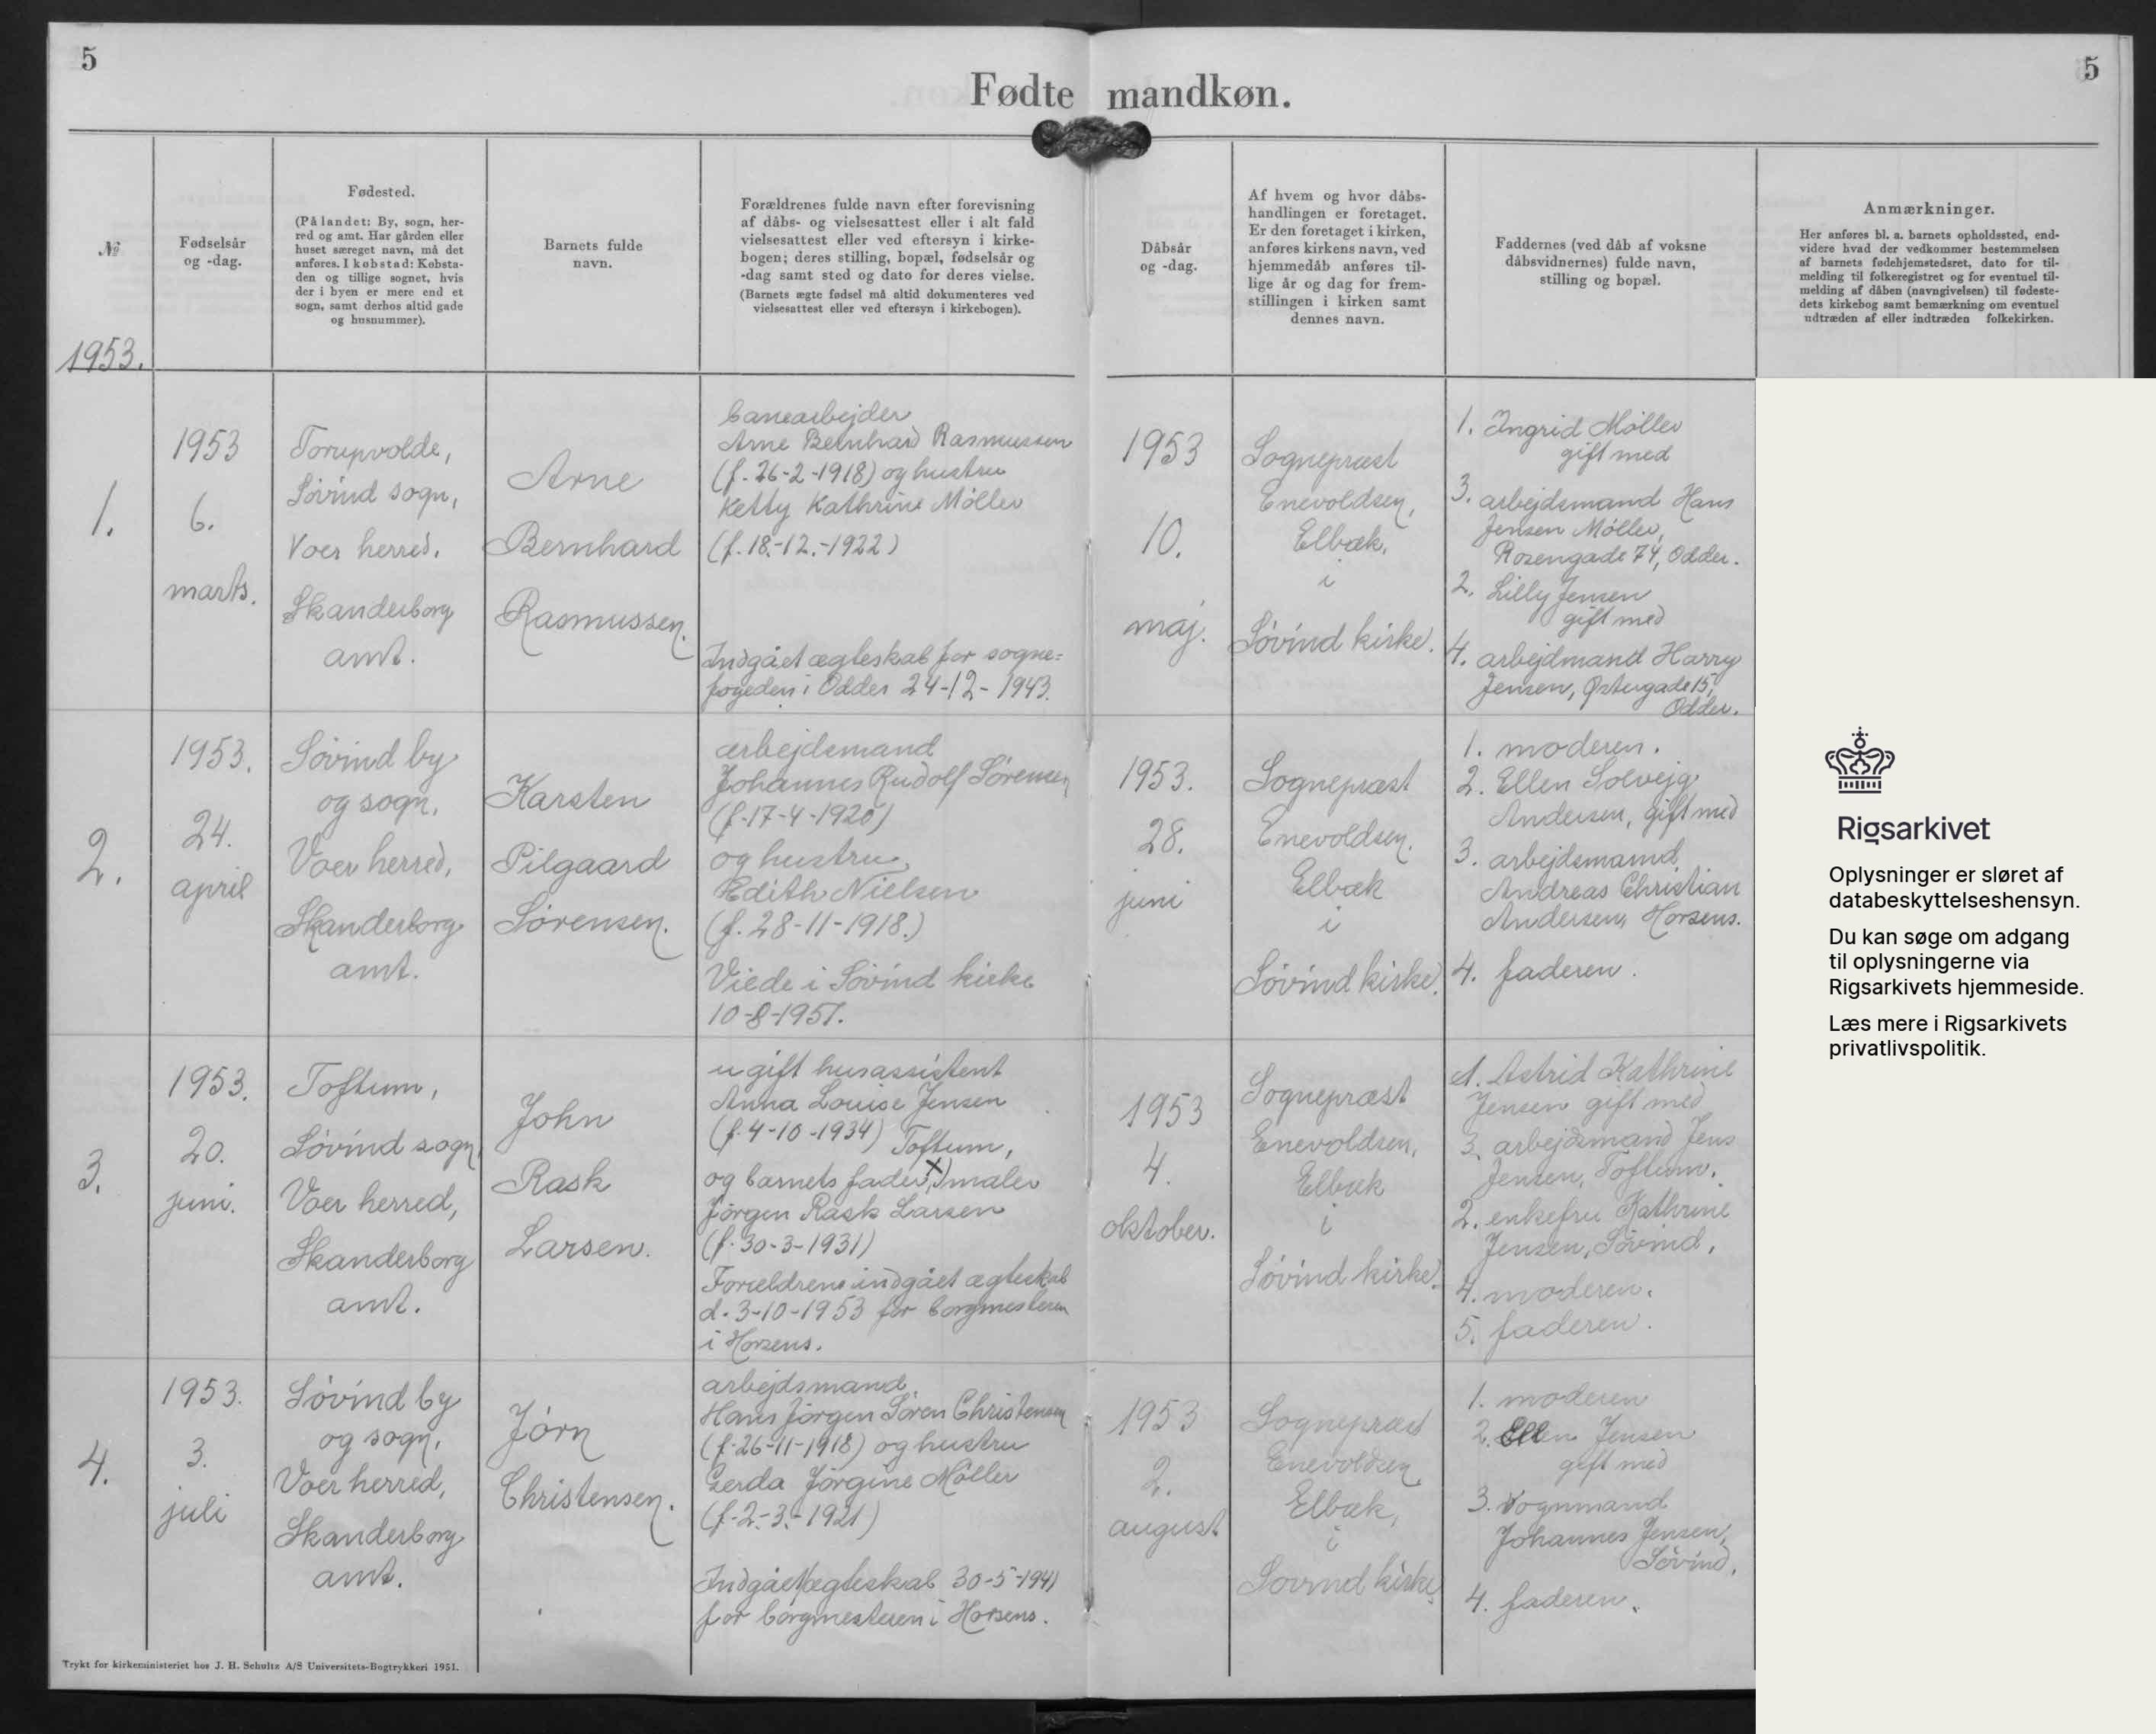 5
5
Fødte mandkøn.
№
Fødselsår
og -dag.
Fødested.
(På landet: By, sogn, her-
red og amt. Har gården eller
huset særeget navn, må det
anføres. I købstad: Købsta-
den og tillige sognet, hvis
der i byen er mere end et
sogn, samt derhos altid gade
og husnummer).
Barnets fulde
navn.
Forældrenes fulde navn efter forevisning
af dåbs- og vielsesattest eller i alt fald
vielsesattest eller ved eftersyn i kirke-
bogen; deres stilling, bopæl, fødselsår og
-dag samt sted og dato for deres vielse.
(Barnets ægte fødsel må altid dokumenteres ved
vielsesattest eller ved eftersyn i kirkebogen).
Dåbsår
og -dag.
Af hvem og hvor dåbs-
handlingen er foretaget.
Er den foretaget i kirken,
anføres kirkens navn, ved
hjemmedåb anføres til-
lige år og dag for frem-
stillingen i kirken samt
dennes navn.
Faddernes (ved dåb af voksne
dåbsvidnernes) fulde navn,
stilling og bopæl.
Anmærkninger.
Her anføres bl. a. barnets opholdssted, end-
videre hvad der vedkommer bestemmelsen
af barnets fødehjemstedsret, dato for til-
melding til folkeregistret og for eventuel til-
melding af dåben (navngivelsen) til fødeste-
dets kirkebog samt bemærkning om eventuel
udtræden af eller indtræden folkekirken.
1953.
1.
1953
6.
marts.
Torupvolde,
Søvind sogn,
Voer herred.
Skanderborg
amt.
Arne
Bernhard
Rasmussen.
banearbejder
Arne Bernhard Rasmussen
(f. 26-2-1918) og hustru
Ketty Kathrine Møller
(f. 18.-12.-1922)
Indgået ægteskab for sogne=
fogeden i Odder 24-12-1943.
1953
10.
maj.
Sognepræst
Enevoldsen,
Elbæk,
i
Søvind kirke.
1. Ingrid Møller
gift med
3. arbejdsmand Hans
Jensen Møller,
Rosengade 74, Odder.
2. Lilly Jensen
gift med
4. arbejdmand Harry
Jensen, Østergade 15,
Odder.
2.
1953.
24.
april
Søvind by
og sogn,
Voer herred,
Skanderborg
amt.
Karsten
Pilgaard
Sørensen.
arbejdsmand
Johannes Rudolf Sørensen
(f. 17-4-1920)
og hustru
Edith Nielsen
(f. 28-11-1918.)
Viede i Søvind kirke
10-8-1951.
1953.
28.
juni
Sognepræst
Enevoldsen.
Elbæk
i
Søvind kirke.
1. moderen.
2. Ellen Solvejg
Andersen, gift med
3. arbejdsmand
Andreas Christian
Andersen, Horsens.
4. faderen.
3.
1953.
20.
juni.
Toftum,
Søvind sogn,
Voer herred,
Skanderborg
amt.
John
Rask
Larsen.
ugift husassistent
Anna Louise Jensen
(f. 4-10-1934) Toftum,
og barnets fader, x) maler
Jørgen Rask Larsen
(f. 30-3-1931)
Forældrene indgået ægteskab
d. 3-10-1953 for borgmesteren
i Horsens.
1953
4.
oktober.
Sognepræst
Enevoldsen,
Elbæk
i
Søvind kirke.
1. Astrid Kathrine
Jensen gift med
3. arbejdsmand Jens
Jensen, Toftum.
2. enkefru Kathrine
Jensen, Søvind,
4. moderen.
5. faderen.
4.
1953.
3.
juli
Søvind by
og sogn,
Voer herred,
Skanderborg
amt.
Jørn
Christensen.
arbejdsmand
Hans Jørgen Søren Christensen
(f. 26-11-1918) og hustru
Gerda Jørgine Møller
(f. 2.-3.-1921)
Indgået ægteskab 30-5-1941
for borgmesteren i Horsens.
1953
2.
august
Sognepræst
Enevoldsen
Elbæk,
i
Søvind kirke.
1. moderen
2. Ellen Jensen
gift med
3. Vognmand
Johannes Jensen,
Søvind.
4. faderen.
Trykt for kirkeministeriet hos J. H. Schultz A/S Universitets-Bogtrykkeri 1951.
Rigsarkivet
Oplysninger er sløret af
databeskyttelseshensyn.
Du kan søge om adgang
til oplysningerne via
Rigsarkivets hjemmeside.
Læs mere i Rigsarkivets
privatlivspolitik.